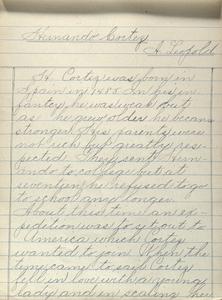 Hernando Cortez
A. Leopold
H. Cortez was born in
Spain in 1485. In his in-
fancy, he was weak but
as he grew older he became
stronger. His parents were
not rich but greatly res-
pected. They sent Hern-
ando to college but at
seventeen he refused to go
to school any longer.
About this time an ex-
pedition was fitted out to
America which Cortez
wanted to join. When the
time came to sail Cortez
fell in love with a young
lady and in scaling her